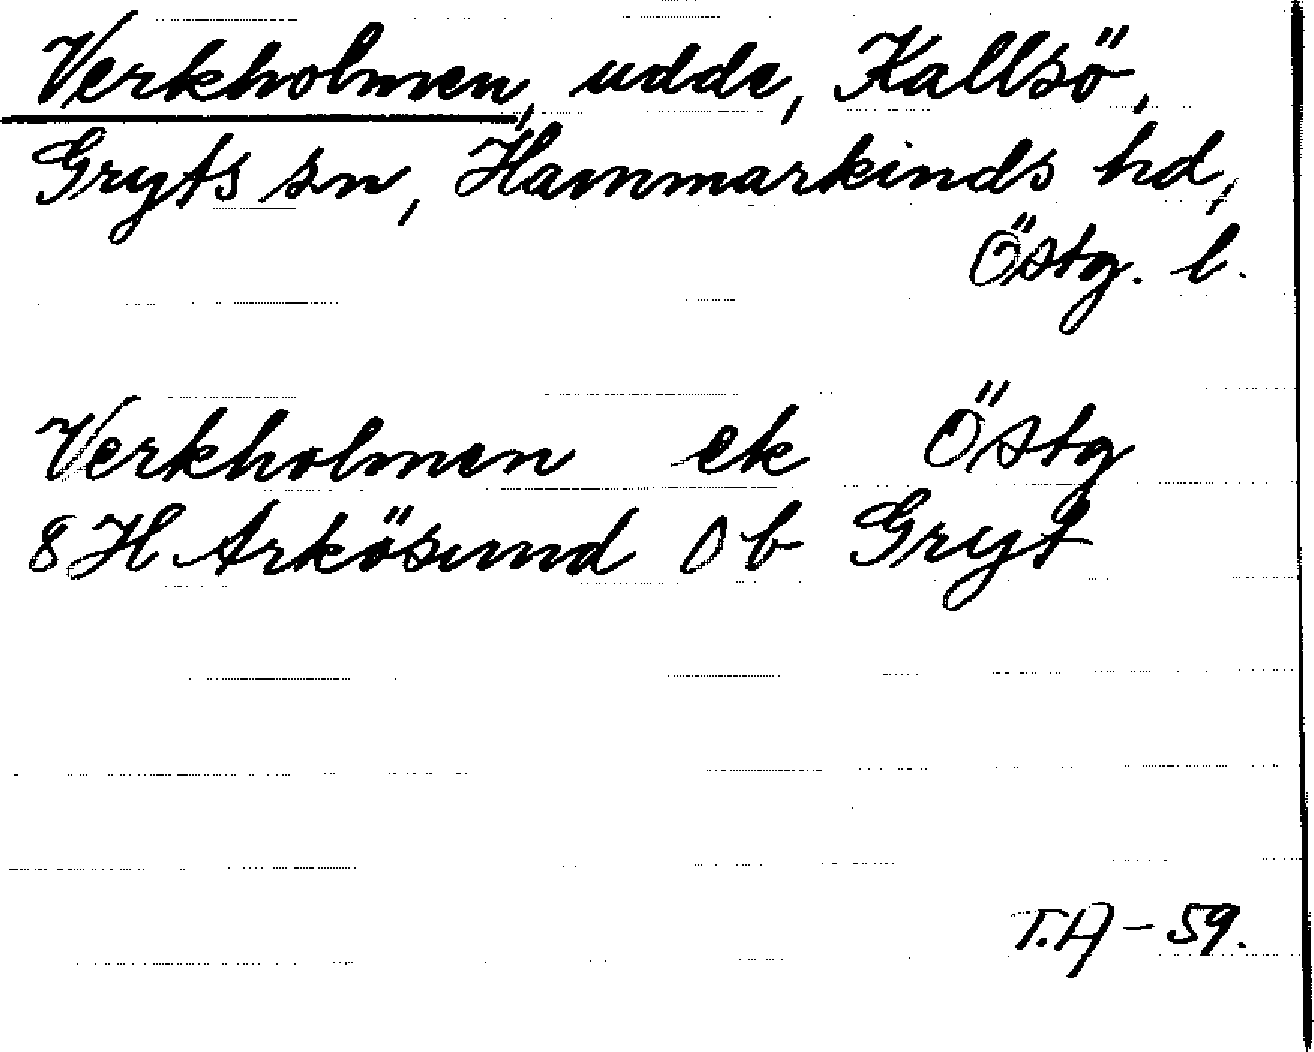 Verkholmen, udde, Kallsö,
Gryts sn, Hammarkinds hd,
Östg. l.
Verkholmen ek Östg
8 H Arkösund 0 b Gryt
T.A-59.